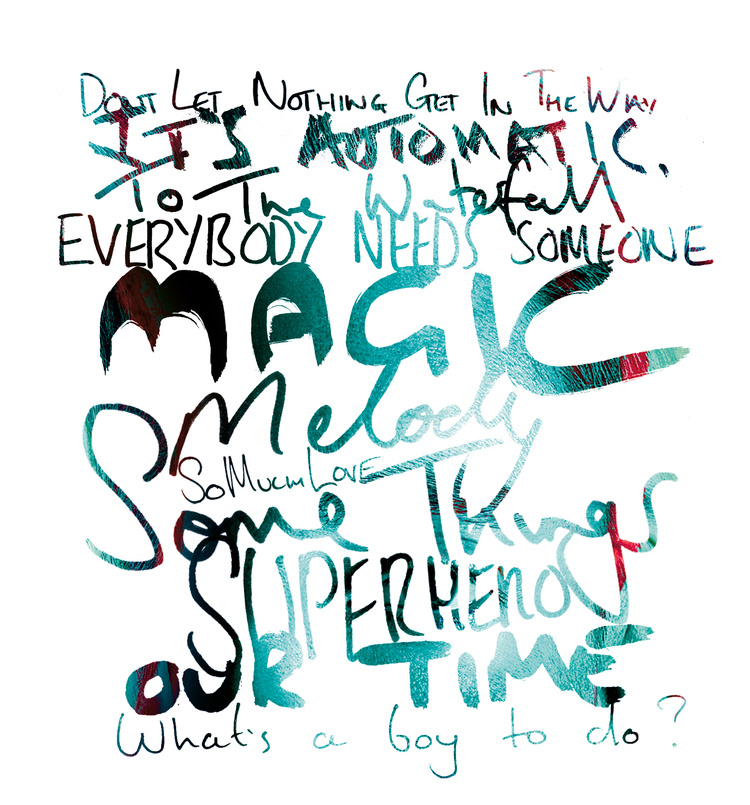 DONT LET NOTHING GET IN THE WAY
IT'S AUTOMATIC.
To The Waterfall
EVERYBODY NEEDS SOMEONE
MAGIC
Melody
So Much Love
Some Things
SUPERHERO
OUR TIME
What's a boy to do?